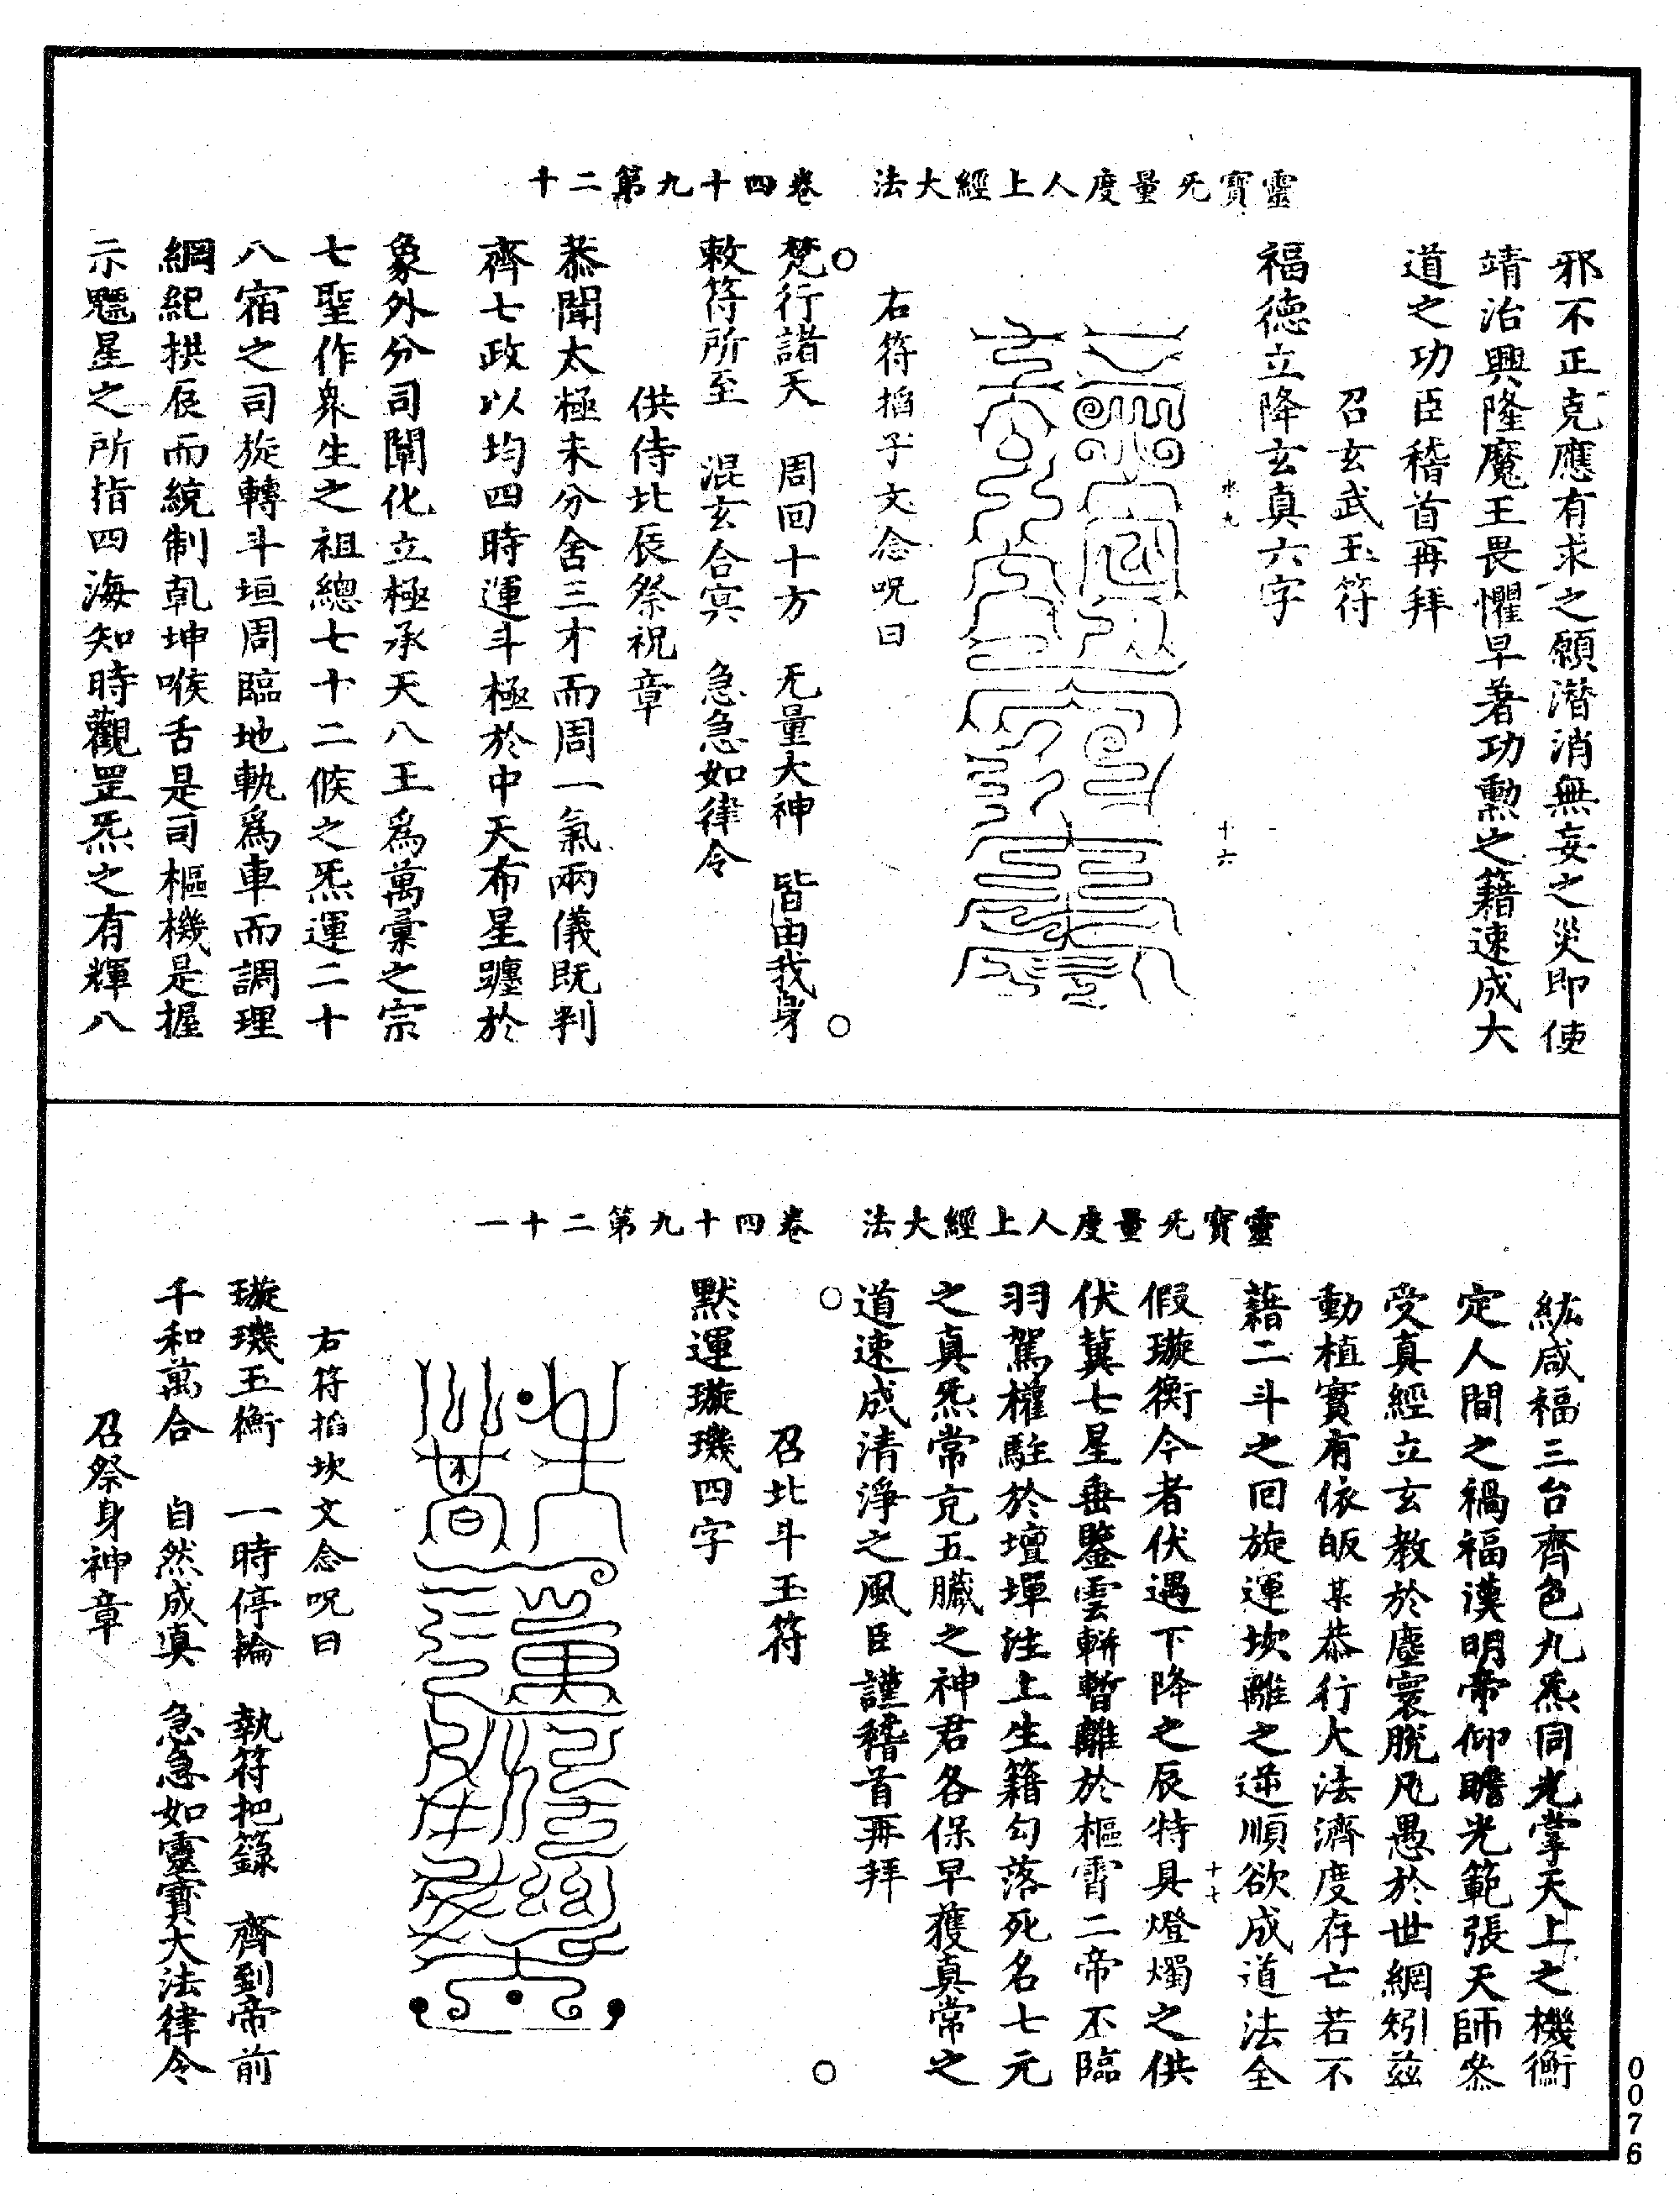 靈寶旡量度人上經大法　卷四十九第二十
邪不正克應有求之願潜消無妄之災即使
靖治興隆魔王畏懼早著功勲之籍速成大
道之功臣稽首再拜
召玄武玉符
福德立降玄真六字
水九　十六
右符掐子文念呪曰
梵行諸天　周回十方　旡量大神　皆由我身
敕符所至　混玄合冥　急急如律令
供侍北辰祭祝章
恭聞太極未分舍三才而周一氣兩儀既判
齊七政以均四時運斗極於中天布星躔於
象外分司闡化立極承天八王爲萬彚之宗
七聖作衆生之祖總七十二候之炁運二十
八宿之司旋轉斗垣周臨地軌爲車而調理
綱紀拱辰而統制乹坤喉舌是司樞機是握
示魒星之所指四海知時觀罡炁之有輝八
靈寶旡量度人上經大法　卷四十九第二十一
紘咸福三台齊色九炁同光掌天上之機衡
定人間之禍福漢明帝仰瞻光範張天師叅
受真經立玄教於塵寰脫凡愚於世網矧兹
動植實有依皈某恭行大法濟度存亡若不
藉二斗之回旋運坎離之逆順欲成道法全
十七
假璇衡今者伏遇下降之辰特具燈燭之供
伏冀七星垂鑒雲軿暫離於樞霄二帝丕臨
羽駕權駐於壇墠注上生籍勾落死名七元
之真炁常克五臟之神君各保早獲真常之
道速成清淨之風臣謹稽首再拜
召北斗玉符
默運璇璣四字
右符掐坎文念呪曰
璇璣玉衡　一時停輪　執符把籙　齊到帝前
千和萬合　自然成真　急急如靈寶大法律令
召祭身神章
0076